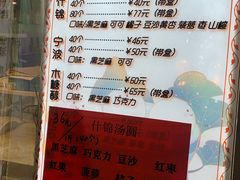 什锦
40个 ¥40元
80个 ¥77元(带盒)
口味:黑芝麻 可可 橘子 豆沙 黄芭 菠萝 枣 山楂
宁波
40个 ¥46元
40个 ¥50元(带盒)
口味:黑芝麻
水
40个 ¥60元
40个 ¥65元(带盒)
口味:黑芝麻 巧克力
36元
什锦汤圆
黑芝麻 巧克力 豆沙 红枣
红果 菠萝 桔子